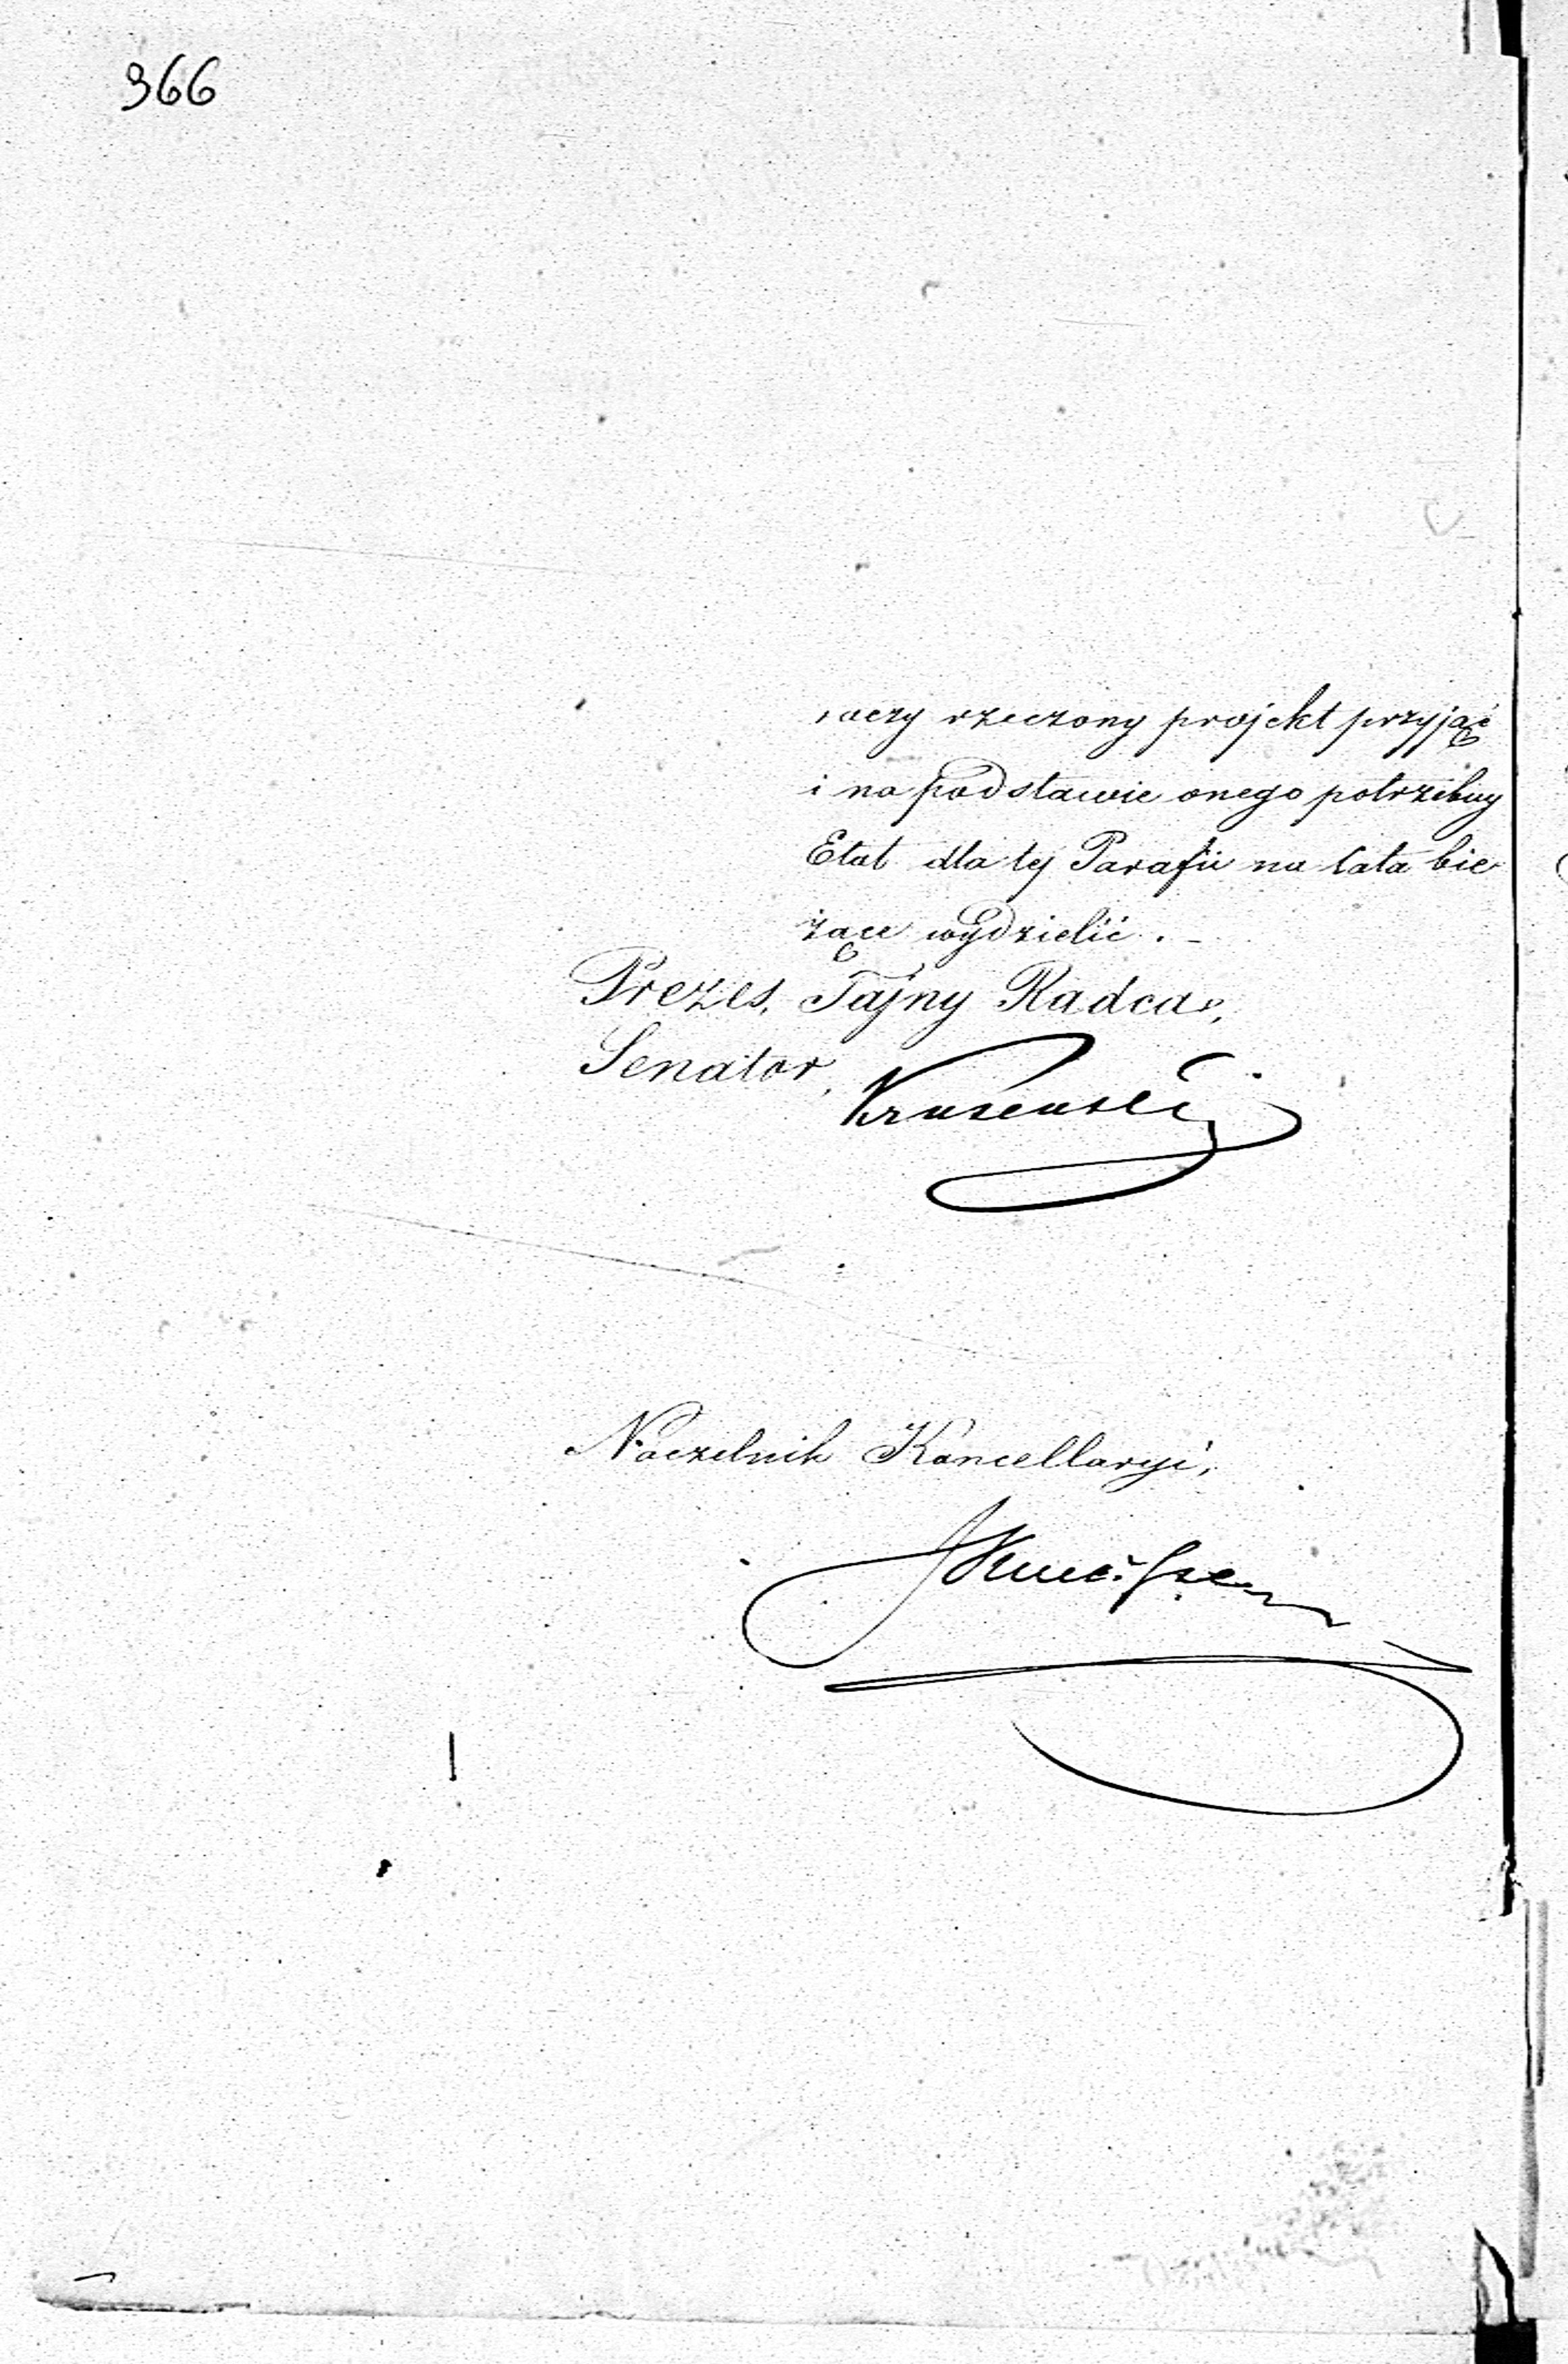 366
raczy rzeczony projekt przyjąć
i na podstawie onego potrzebny
Etat dla tej Parafii na lata bie
żące wydzielić . -
Prezes, Tajny Radca,
Senator,
Naczelnik Kancellaryi,